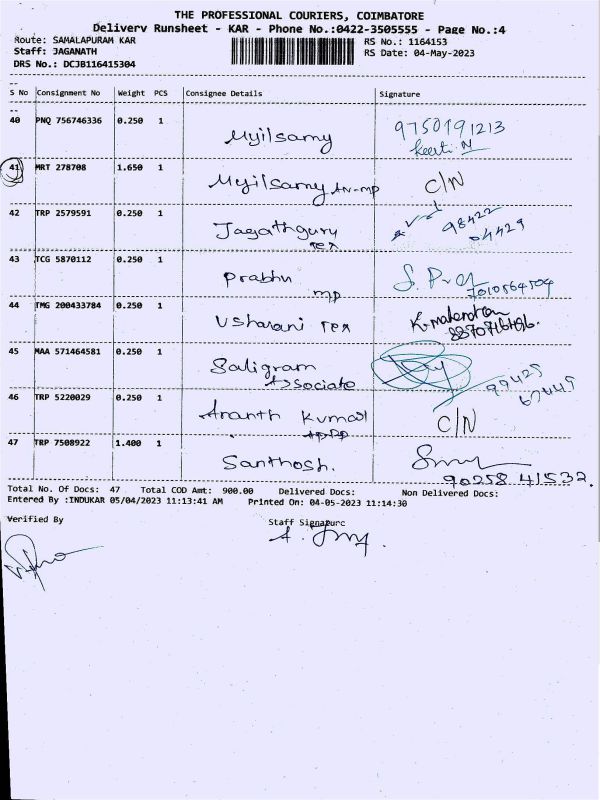 THE PROFESSIONAL COURIERS, COIMBATORE
Delivery Runsheet - KAR - Phone No.:0422-3505555 - Page No.:4
Route: SAMALAPURAM KAR
RS No.: 1164153
Staff: JAGANATH
RS Date: 04-May-2023
DRS No.: DCJB116415304
S No Consignment No Weight PCS Consignee Details Signature
40 PNQ 756746336 0.250 1 Myilsamy 9750191213
Keerti. N
41 MRT 278708 1.650 1 Myilsamy AN-MP C/N
42 TRP 2579591 0.250 1 Jagathguru 98422
Tex 04429
43 TCG 5870112 0.250 1 Prabhu
MP 7010564504
44 TMG 200433784 0.250 1 Usharani Tex
45 MAA 571464581 0.250 1 Saligram
Associate 99425
67449
46 TRP 5220029 0.250 1 Ananth Kumar C/N
47 TRP 7508922 1.400 1 Santhosh.
90258 41532.
Total No. Of Docs: 47 Total COD Amt: 900.00 Delivered Docs: Non Delivered Docs:
Entered By :INDUKAR 05/04/2023 11:13:41 AM Printed On: 04-05-2023 11:14:30
Verified By
Staff Signature